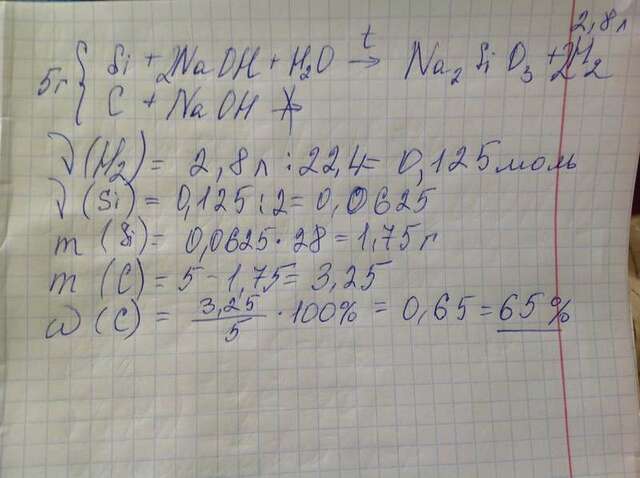 2,8л
5г { Si + 2NaOH + H2O t→ Na2SiO3 + 2H2
C + NaOH ↛
ν(H2) = 2,8л : 22,4 = 0,125моль
ν(Si) = 0,125 : 2 = 0,0625
m (Si) = 0,0625 · 28 = 1,75г
m (C) = 5 - 1,75 = 3,25
ω (C) = 3,25/5 · 100% = 0,65 = 65%